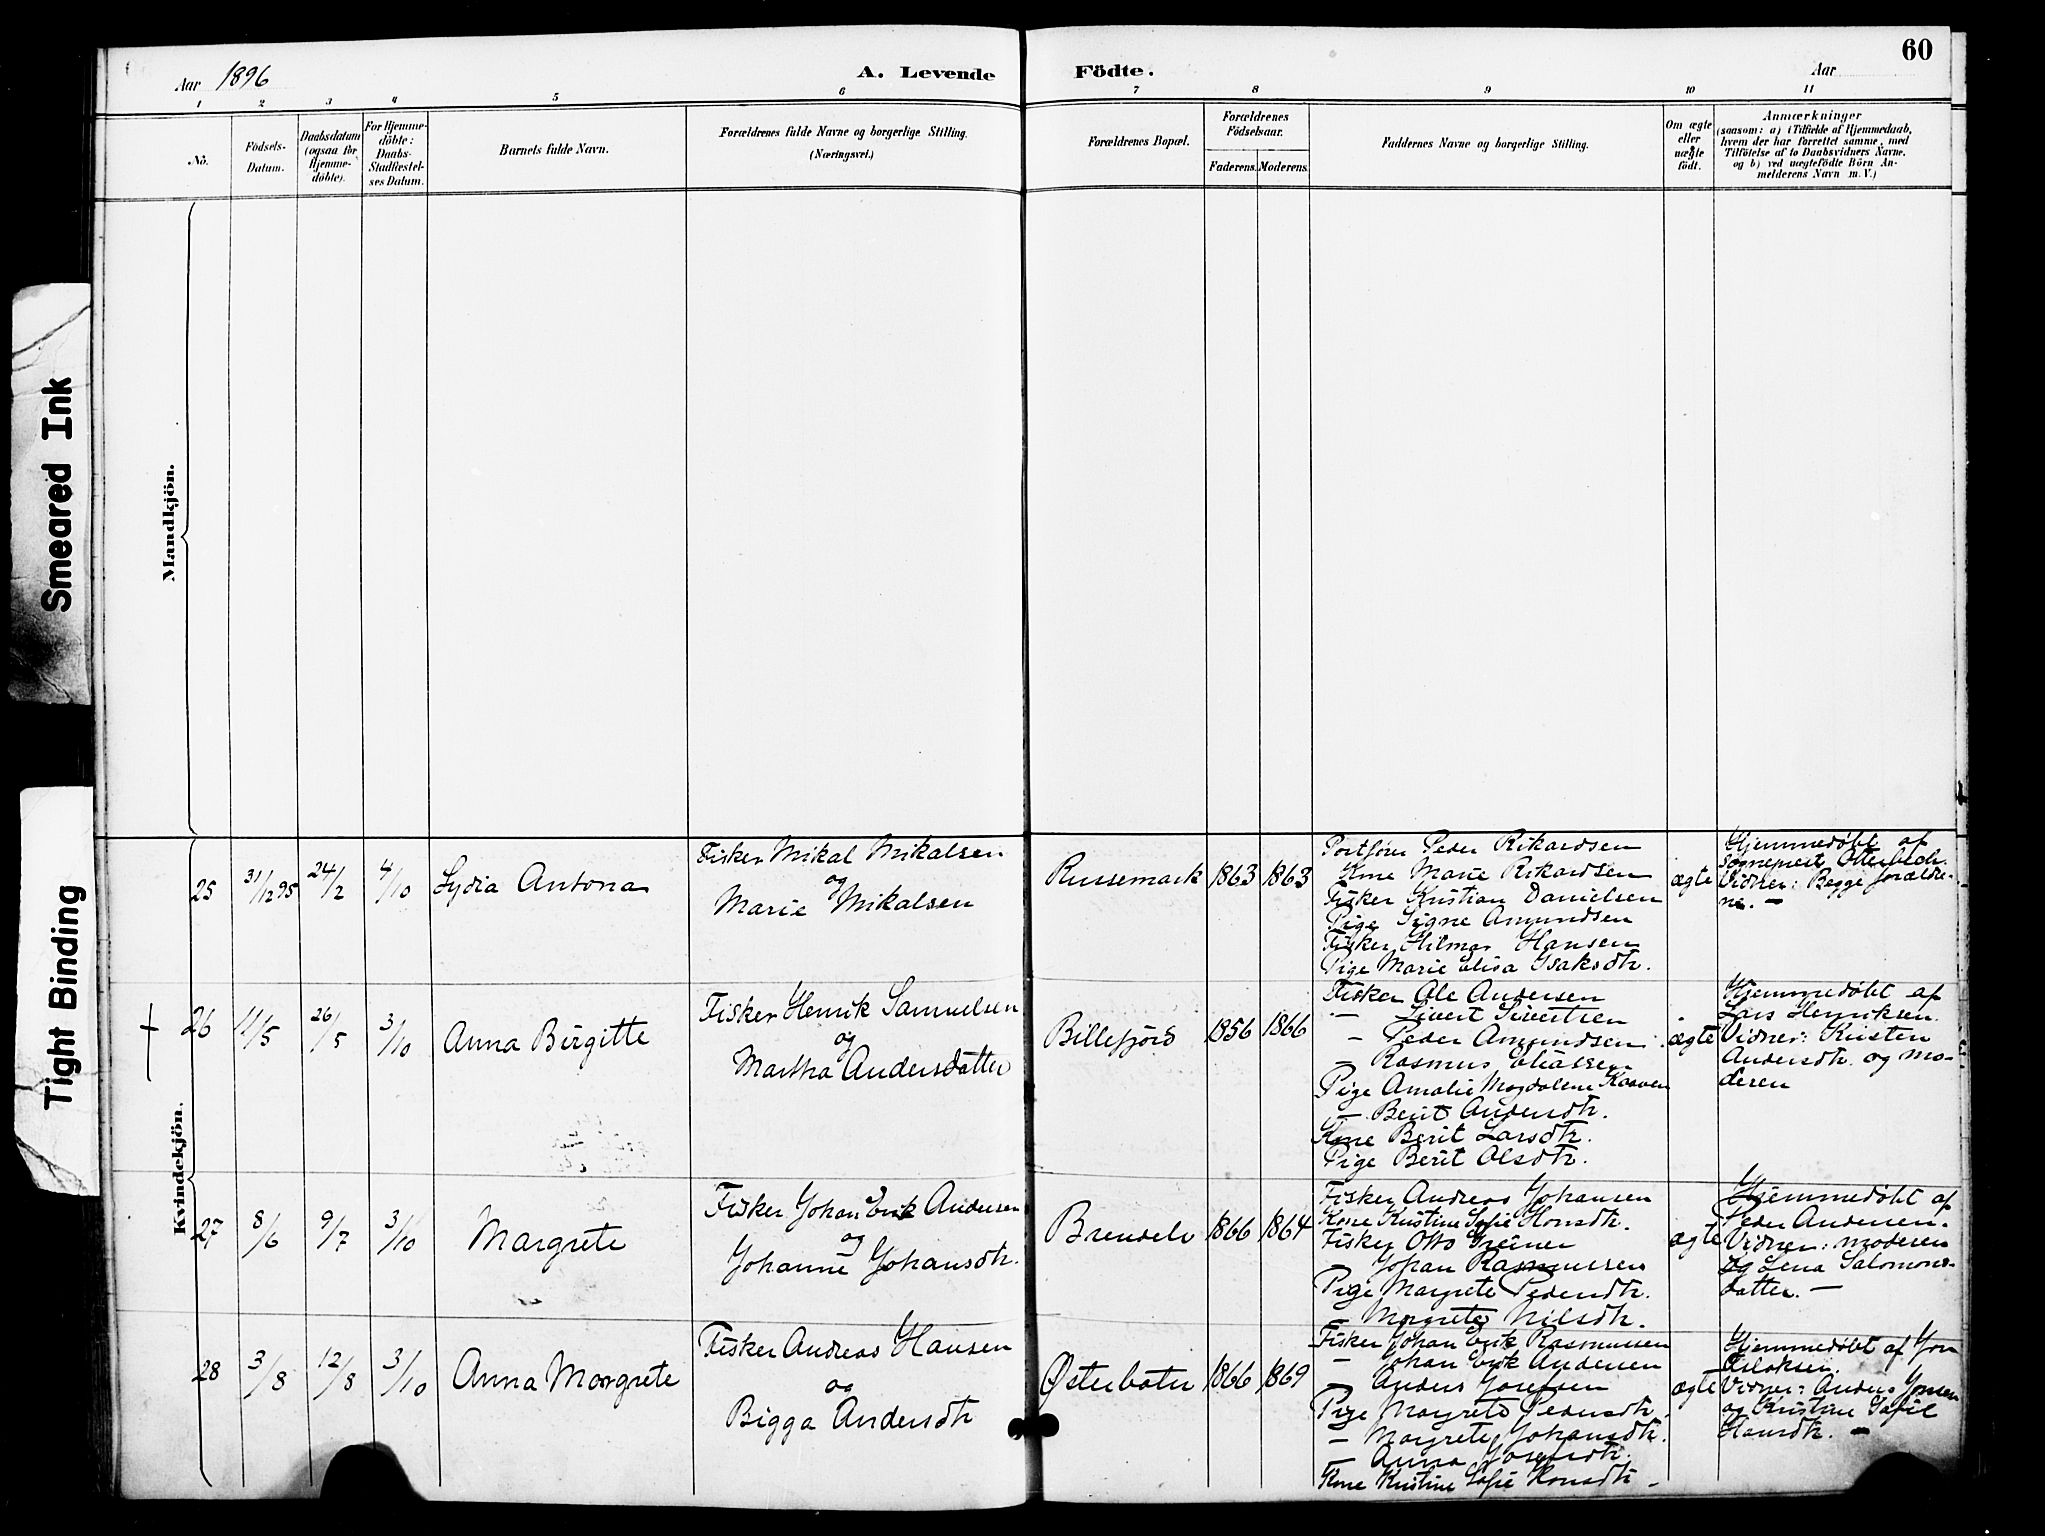 60
Aar 1896
A. Levende Födte.
Aar
1 2 3 4 5 6 7 8 9 10 11
No.
Födsels-
Datum.
Daabsdatum
(ogsaa for
Hjemme-
döbte).
For Hjemme-
döbte:
Daabs-
Stadfæstel-
ses Datum.
Barnets fulde Navn.
Forældrenes fulde Navne og borgerlige Stilling.
(Næringsvei.)
Forældrenes Bopæl.
Forældrenes
Födselsaar.
Faderens.
Moderens.
Faddernes Navne og borgerlige Stilling.
Om ægte
eller
uægte
födt.
Anmærkninger
(saasom: a) i Tilfælde af Hjemmedaab,
hvem der har forrettet samme, med
Tilföielse af to Daabsvidners Navne,
og b) ved uægtefödte Börn An-
melderens Navn m. V.)
Mandkjön.
Smeared Ink
Tight Binding
Kvindekjön.
25
31/12 95
24/2
4/10
Lydia Antona
Fisker Mikal Mikalsen
og
Marie Mikalsen
Russemark
1863
1863
Peder Rikardsen
Kone Marie Rikardsen
Fisker Kristian Danielsen
Pige Signe Amundsen
Fisker Hilmar Hansen
Pige Marie Elisa Isaksdtr.
ægte
Hjemmedøbt af
sogneprest Otterbech.
Vidner: Begge foræld-
ne. —
26
11/5
26/5
3/10
Anna Birgitte
Fisker Henrik Samuelsen
og
Martha Andersdatter
Billefjord
1856
1866
Fisker Ole Andersen
— Sivert Sivertsen
— Peder Amundsen
— Rasmus Eliassen
Pige Amalie Magdalene Kaaven
— Berit Andersdtr.
Kone Berit Larsdtr.
Pige Berit Olsdtr.
ægte
Hjemmedøbt af
Lars Henriksen.
Vidner: Kristen
Andersdtr. og mo-
deren
27
8/6
9/7
3/10
Margrete
Fisker Johan Erik Andersen
og
Johanne Johansdtr.
Brendelv
1866
1864
Fisker Andreas Johansen
Kone Kristine Sofie Hansdtr.
Fisker Otto Greiner
Johan Rasmussen
Pige Margrete Pedersdtr.
— Margrete Nilsdtr.
ægte
Hjemmedøbt af
Peder Andersen.
Vidner: moderen
og Lena Salomons-
datter. —
28
3/8
12/8
3/10
Anna Margrete
Fisker Andreas Hansen
og
Bigga Andersdtr
Østerbotn
1866
1869
Fisker Johan Erik Rasmussen
— Johan Erik Andersen
— Anders Josefsen
Pige Margrete Pedersdtr.
— Margrete Johansdtr.
— Anna Josefsdtr.
Kone Kristine Sofie Hansdtr —
ægte
Hjemmedøbt af Jon
Vidner: Anders Jonsen
og Kristine Sofie
Hansdtr. —